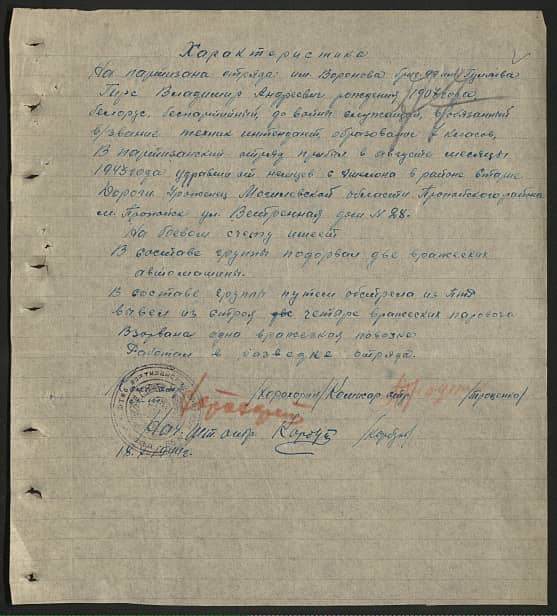 Характеристика
На партизана отряда им. Воронова бригады Гуляева
Гирс Владимир Андреевич рождения 1904 года
белорус, беспартийный, до войны служащий, в/обязанный
в/звание техник интендант образование 7 классов.
В партизанский отряд прибыл в августе месяце
1943 года удравши от немцев с эшелона в районе Старые
Дороги Уроженец Могилевской области Пропойского района
м. Пропойск ул. Ветренная дом № 28.
На боевом счету имеет
В составе группы подорвал две вражеских
автомашины.
В составе группы путем обстрела из ПТР
вывел из строя две четыре вражеских паровоза
Взорвана одна вражеская повозка
Работал в разведке отряда.
/Комиссар отр. /Троценко/
Нач. шт отр. Корбут /Корбут/
18.7.1944г.